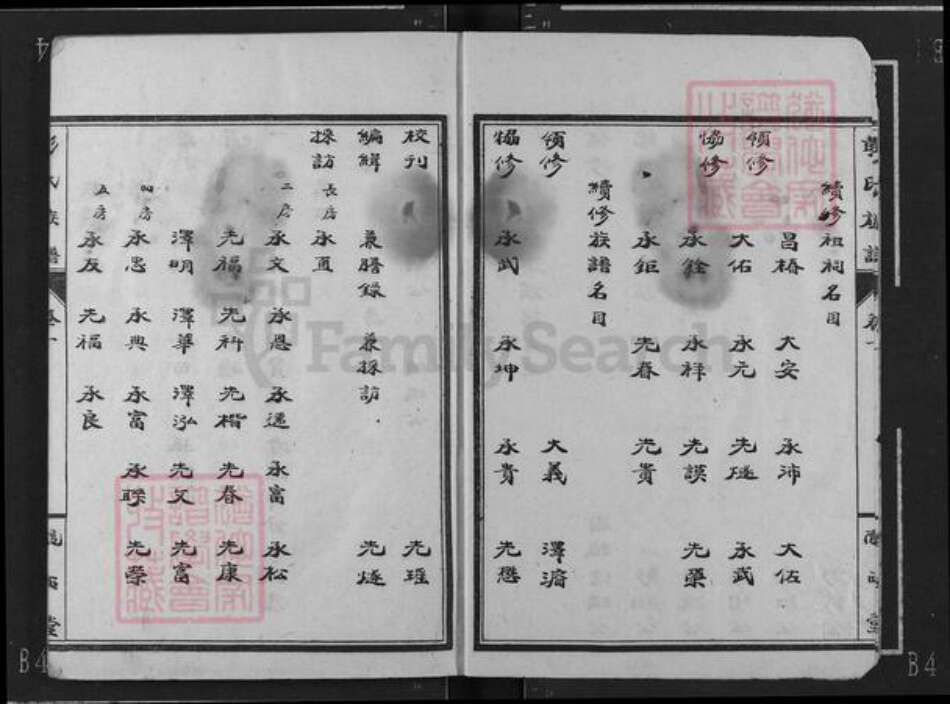 續修祖祠名目
昌椿 大安 永沛 大佑
領修 大佑 永元 先燧 永武
協修 永銓 永祥 先謨 先榮
永鉅 先春 先貴
續修族譜名目
領修 大義 澤濬
協修 永武 永坤 永貴 先懋
校刊 先瑶
編輯 兼謄錄 兼採訪 先燧
採訪 長房 永直
二房 永文 永恩 永遜 永富 永松
先福 先科 先楷 先春 先康
澤明 澤華 澤泓 先文 先富
四房 永忠 永典 永富 永聯 先榮
五房 永友 先福 永良
氏族譜
FamilySearch
B4
B4